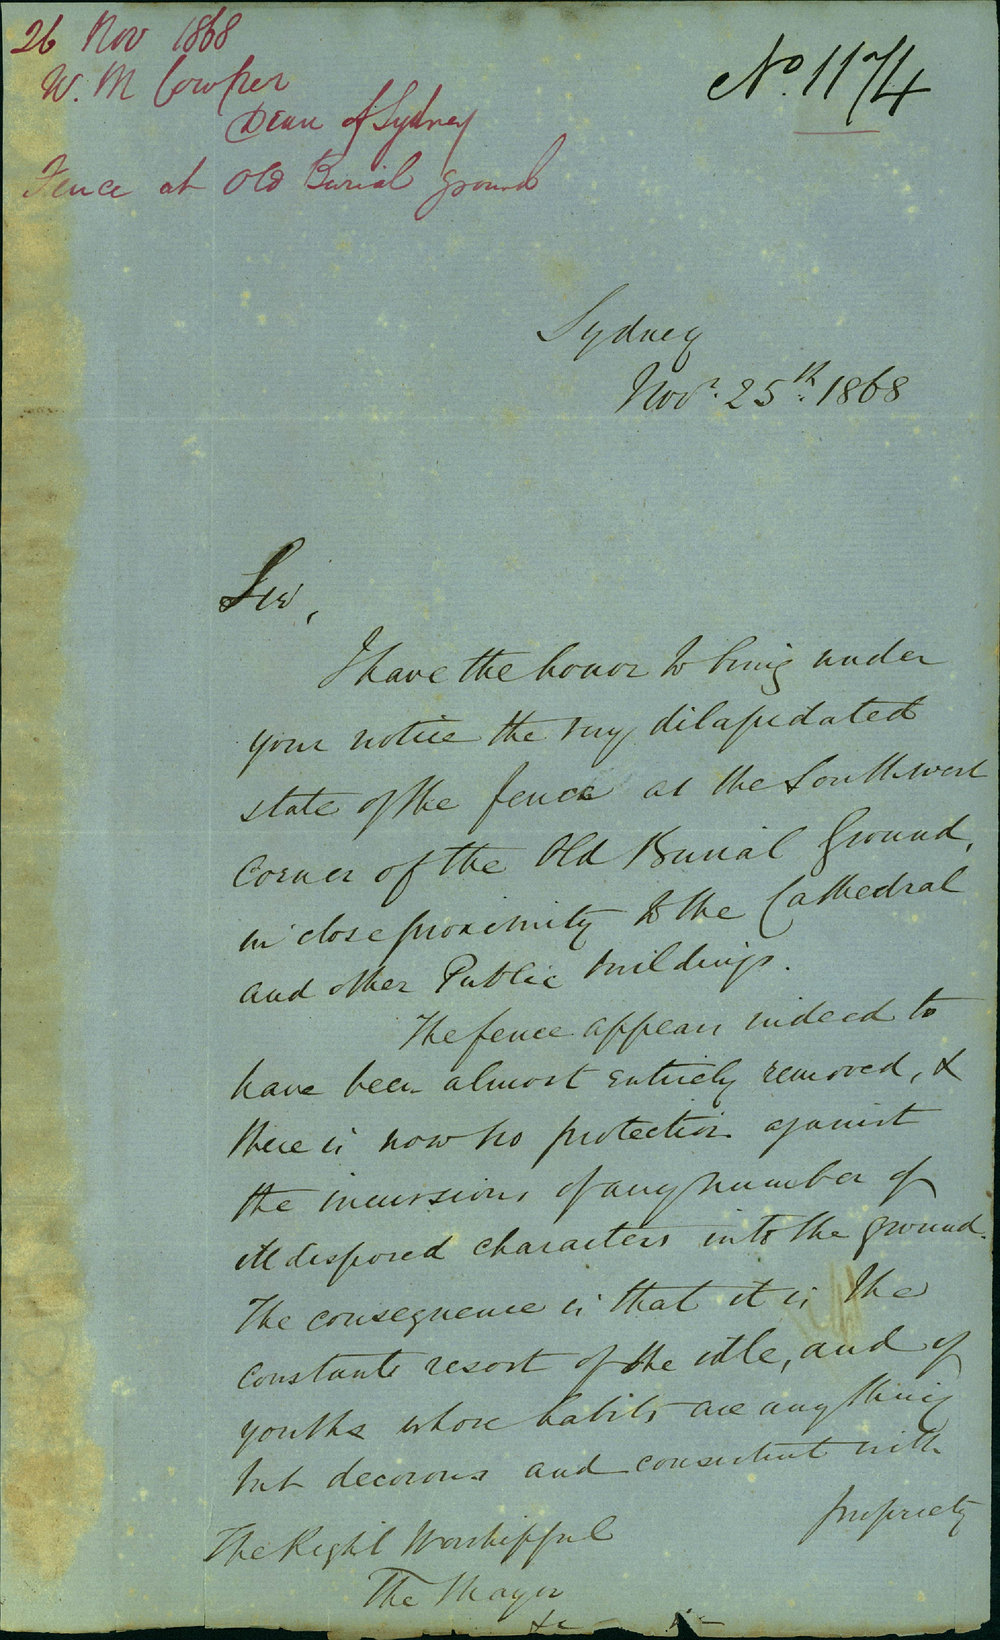 26 Nov 1868
W. M Cowper
Dean of Sydney
Fence at Old Burial ground
No. 1174
Sydney
Novr. 25th. 1868
Sir,
I have the honor to bring under
your notice the very dilapidated
state of the fence at the Southwest
Corner of the Old Burial Ground,
in close proximity to the Cathedral
and other Public buildings.
The fence appears indeed to
have been almost entirely removed, &
there is now no protection against
the incursions of any number of
ill disposed characters into the ground.
The consequence is that it is the
constant resort of the idle, and of
youths whose habits are anything
but decorous and consistent with
propriety
The Right Worshipful
The Mayor
&c &c